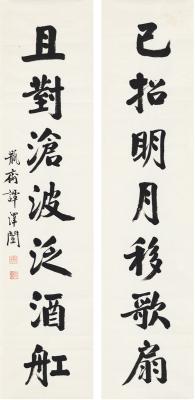 已招明月移歌扇
且對滄波泛酒舡
瓶齋譚澤闓